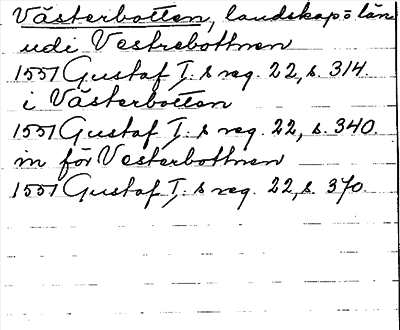 Västerbotten, landskap o län
udi Vestrebottnen
1551 Gustaf I:s reg. 22, s. 314.
i Västerbotten
1551 Gustaf I:s reg. 22, s. 340.
in för Vesterbottnen
1551 Gustaf I:s reg. 22, s. 370.